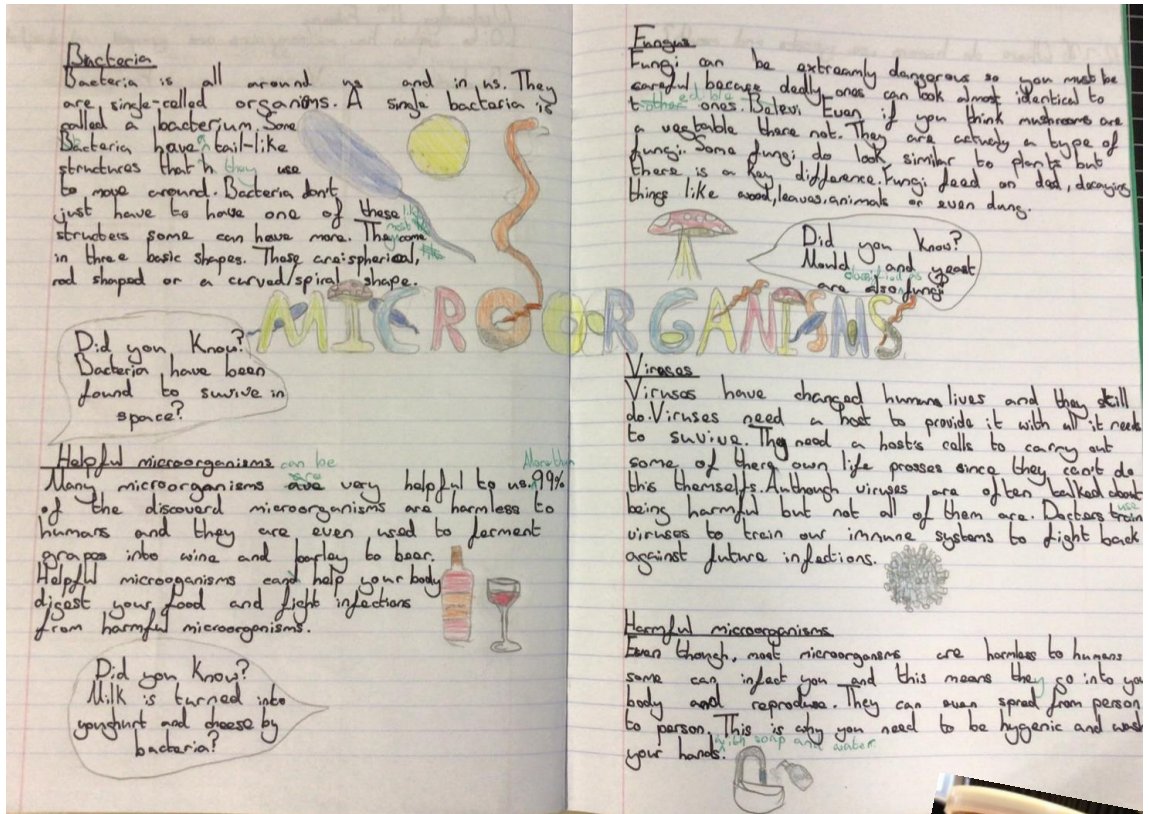 Bacteria
Bacteria is all around us and in us. They
are single-called organisms. A single bacteria is
called a bacterium. Some
Bacteria have tail-like
structures that they use
to move around. Bacteria don't
just have to have one of these
structers some can have more. They come
in three basic shapes. Those are: spherical,
rod shaped or a curved/spiral shape.
Did you Know?
Bacteria have been
found to suvive in
space?
Helpful microorganisms
can be
Many microorganisms are very helpful to us. 99%
of the discoverd microorganisms are harmless to
humans and they are even used to ferment
grapes into wine and barley to beer.
Helpful microoganisms can help your body
digest your food and fight infections
from harmful microorganisms.
Did you Know?
Milk is turned into
youghurt and cheese by
bacteria?
MICROORGANISMS
Fungus
Fungi can be extreamly dangerous so you must be
careful becase deadly ones can look almost identical to
edible
other ones. Belevi Even if you think mushrooms are
a vegtable there not. They are actualy a type of
fungi. Some fungi do look similar to plants but
there is a key difference. Fungi feed on ded, decaying
things like wood, leaves, animals or even dung.
Did you know?
Mould and yeast
classified as
are also fungi
Viruses
Viruses have changed humans lives and they still
do. Viruses need a host to provide it with all it needs
to suvive. They need a host's cells to carry out
some of there own life prosses since they can't do
this themselfs. Authough viruses are often talked about
being harmful but not all of them are. Docters train
use
viruses to train our immune systems to fight back
against future infections.
Harmful microorganisms
Even though, most microorganisms are harmless to humans
some can infect you and this means they go into you
body and reproduse. They can even spred from person
to person. This is why you need to be hygenic and wash
with soap and water.
your hands.